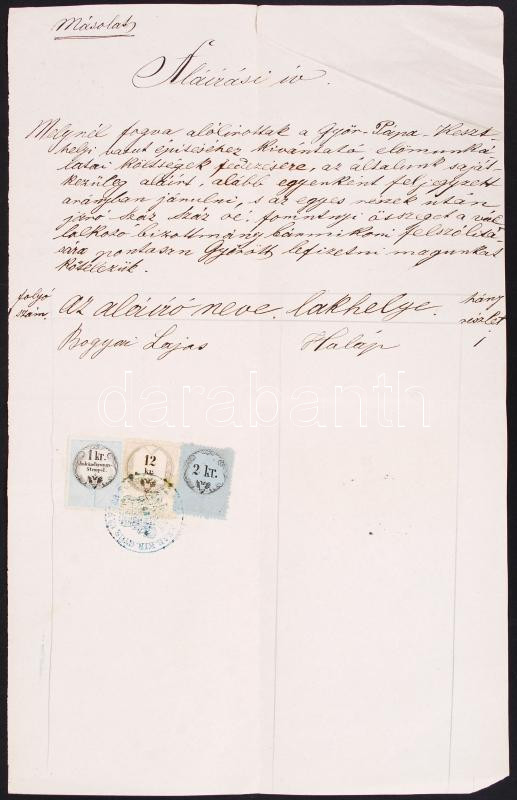 Másolat
Aláirási iv.
Melynél fogva alólirottak a Győr-Pápa-Keszt-
helyi vasut épitéséhez kivántató előmunká-
latai költségek fedezésére, az általunk saját-
kezüleg aláirt, alább egyenként feljegyzett
arányban járulni, s az egyes részek után
járó száz oé. forintnyi összeget a vál-
lalkozó bizottmány bármikori felszólitá-
sára pontosan Győrött lefizetni magunkat
kötelezük.
folyó szám. az aláiró neve. lakhelye. hány részlet
Bogyai Lajos Haláp 1
darabanth
1 kr. 12 kr. 2 kr.
Stempel